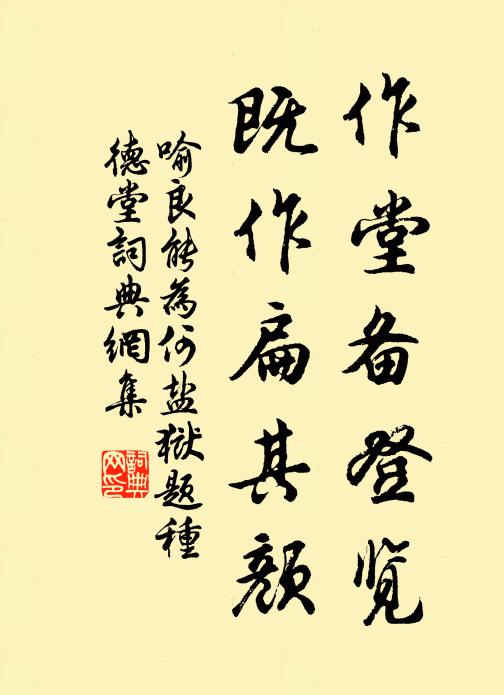 作堂备登览
既作扁其颜
喻良能為何盐獄题種
德堂詞典網集
詞典网印